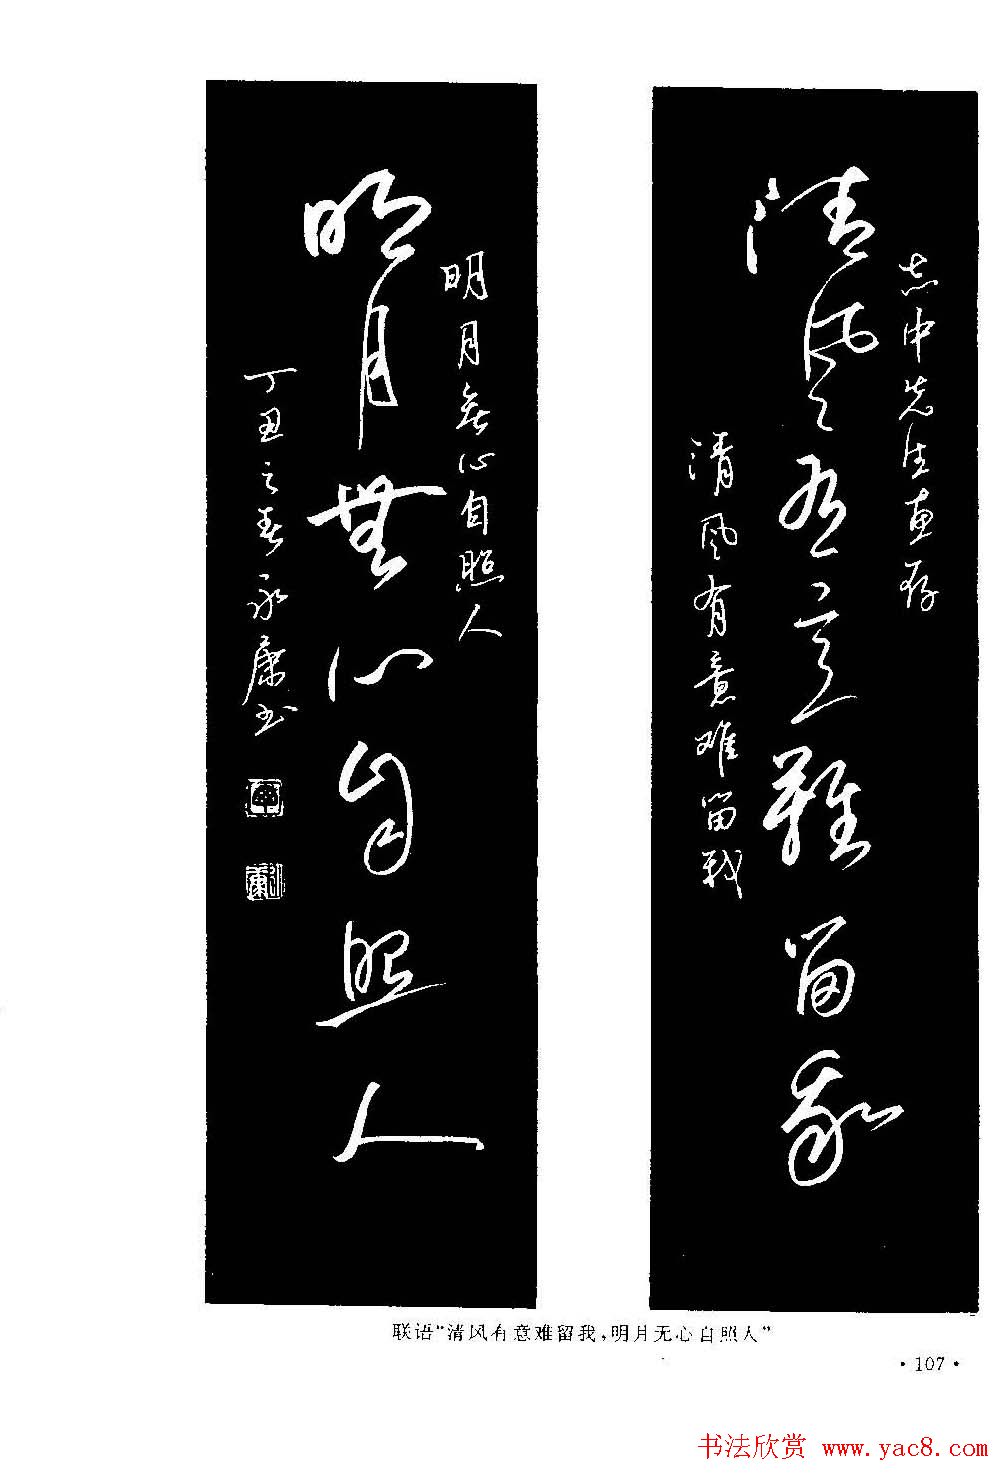 志中先生惠存
清风有意难留我
清风有意難留我
明月无心自照人
明月無心自照人
丁丑之春永康书
联语"清风有意难留我,明月无心自照人"
·107·
书法欣赏 www.yac8.com